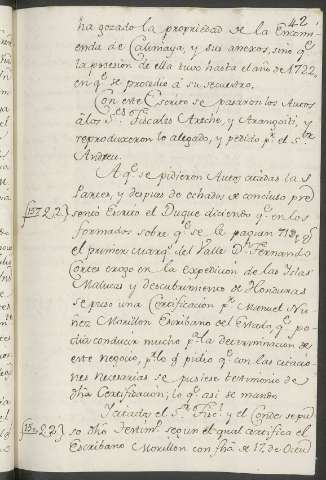 42
ha gozado la propriedad de la Encom
ienda de Calimaya, y sus anexos, sino qe
la posesion de ella tuvo hasta el año de 1722,
en qe se procedió a su secuestro.
Con este Escrito se pasaron los Autos
a los Sres Fiscales Areche, y Aranguiti, y
reproduxeron lo alegado, y pedido pr el Sor
Andreu.
A qe se pidieron Autos citadas las
Partes, y despues de echados se concluso pre
sentó Escrito el Duque diciendo qe en los
formados sobre qe se le paguen
el primer Marqs del Valle Dn Fernando
Cortes erogo en la Expedicion de las Islas
Malucas y descubrimiento de Honduras
se puso una Certificacion pr Manuel Nu
ñez Morillon Escribano del Estado qe po
dia conducir mucho pa la determinacion de
este negocio, pr lo qe pidio qe con las citacio
nes necesarias se pusiese testimonio de
dha Certificacion, lo qe asi se mandó.
Citados el Sr Fiscl y el Conde se pu
so dho Testimo segun el qual certifica el
Escribano Morillon con fha de 17 de Octu